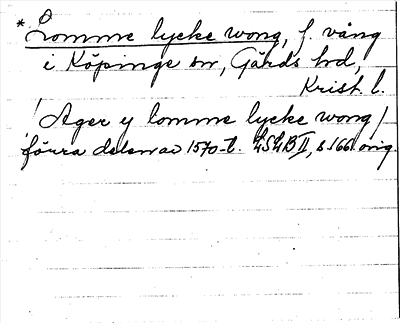 *Lomme lycke wong, f. vång
i Köpinge sn, Gärds hd,
Krist. l.
/Ager y lomme lycke wong/
förra delen av 1570-t. LSLB II, s 166 orig.